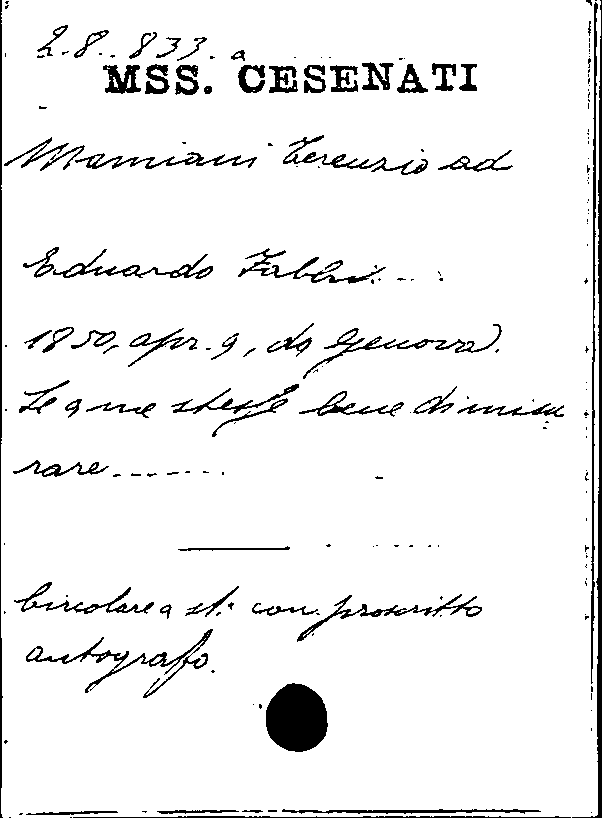 2.8.833.a
MSS. CESENATI
Mamiani Terenzio ad
Eduardo Fabbri....
1850, apr. 9, da Genova.
Se a me stesse bene di misu
rare.......
Circolare a st. con proscritto
autografo.